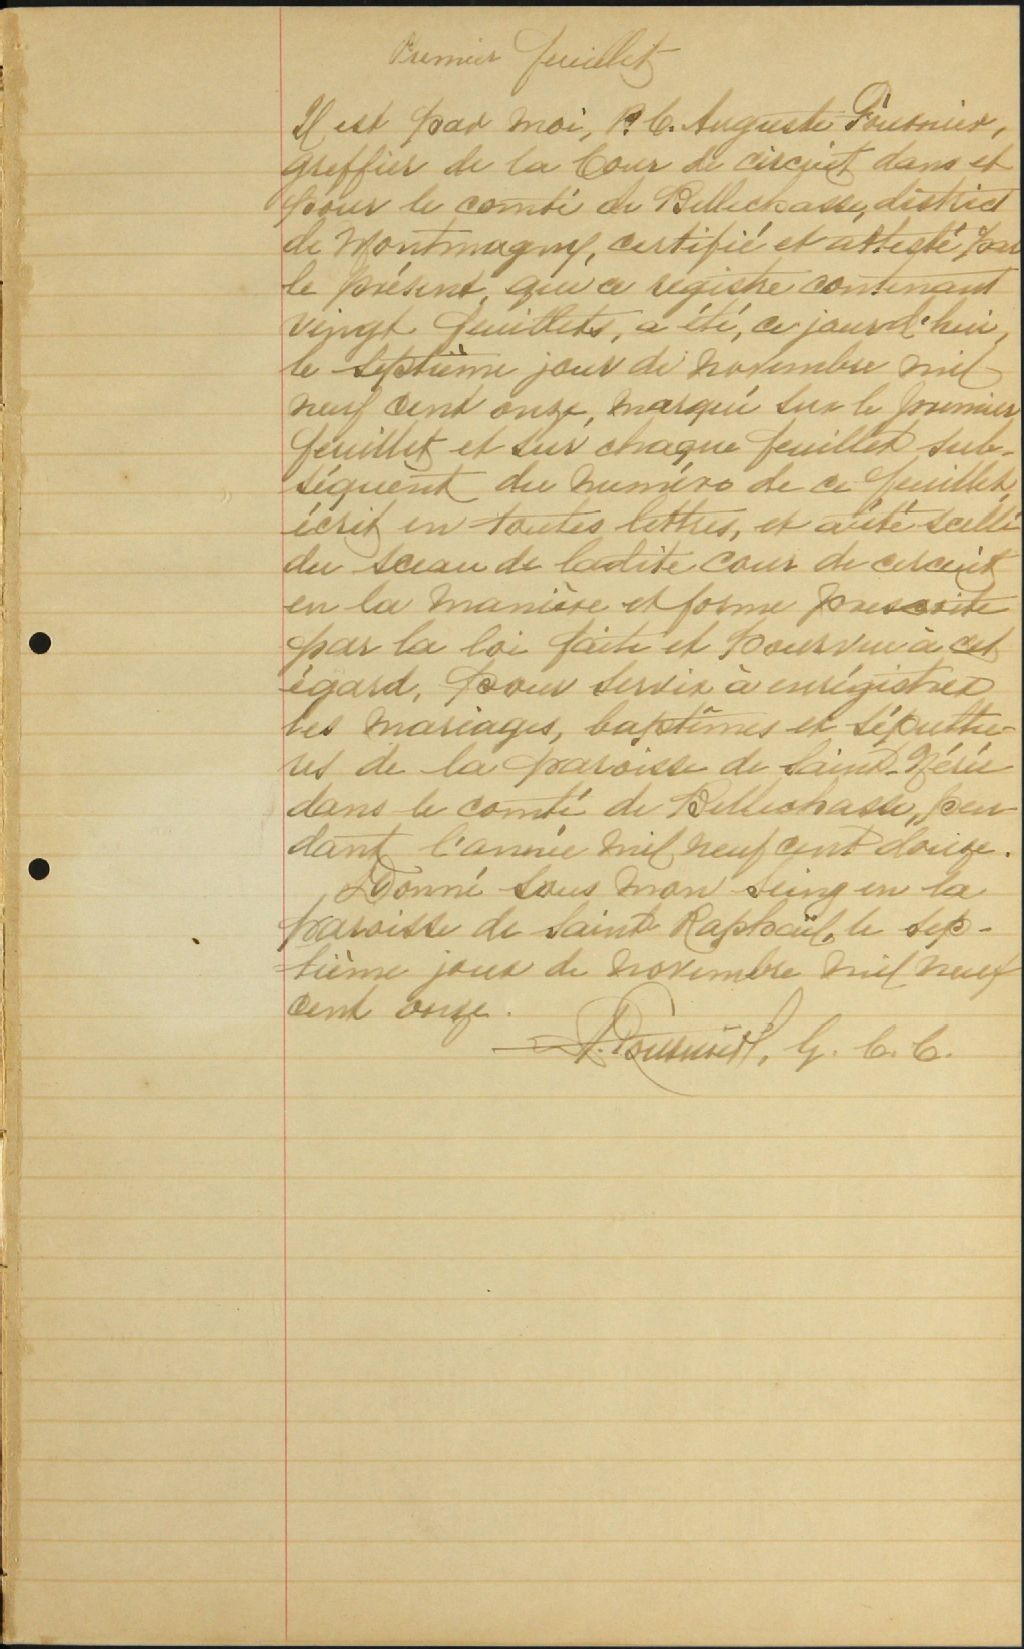 Premier feuillet
Il est par moi, P. C. Auguste Fournier,
greffier de la Cour de circuit dans et
pour le comté de Bellechasse, district
de Montmagny, certifié et attesté par
le présent, que ce registre contenant
vingt feuillets, a été, ce jourd'hui,
le septième jour de novembre mil
neuf cent onze, marqué sur le premier
feuillet et sur chaque feuillet sub-
séquent du numéro de ce feuillet,
écrit en toutes lettres, et a été scellé
du sceau de ladite cour de circuit
en la manière et forme prescrite
par la loi faite et pourvue à cet
égard, pour servir à enrégistrer
les mariages, baptêmes et sépultu-
res de la paroisse de Saint-Nérée
dans le comté de Bellechasse, pen-
dant l'année mil neuf cent douze.
Donné sous mon seing en la
paroisse de Saint Raphaël, le sep-
tième jour de novembre mil neuf
cent onze.
A. Fournier, G. C. C.